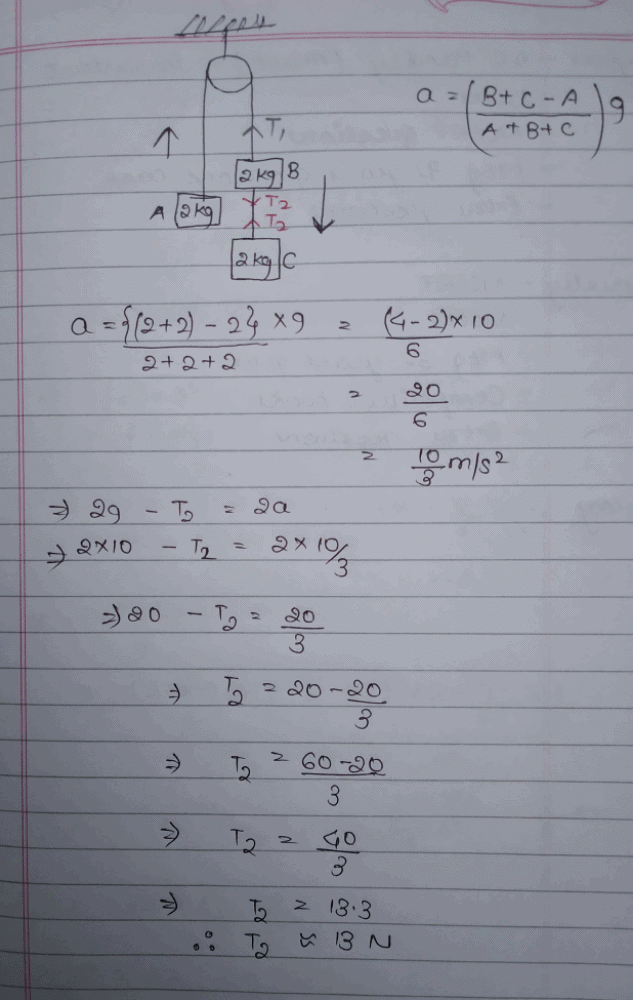 a = (B + C - A / A + B + C) g
T₁
2 kg B
A 2 kg
T₂
T₂
2 kg C
a = {(2+2) - 2} × g / 2 + 2 + 2 = (4 - 2) × 10 / 6
= 20 / 6
= 10 / 3 m/s²
⇒ 2g - T₂ = 2a
⇒ 2×10 - T₂ = 2 × 10/3
⇒ 20 - T₂ = 20 / 3
⇒ T₂ = 20 - 20 / 3
⇒ T₂ = 60 - 20 / 3
⇒ T₂ = 40 / 3
⇒ T₂ = 13.3
∴ T₂ ≈ 13 N